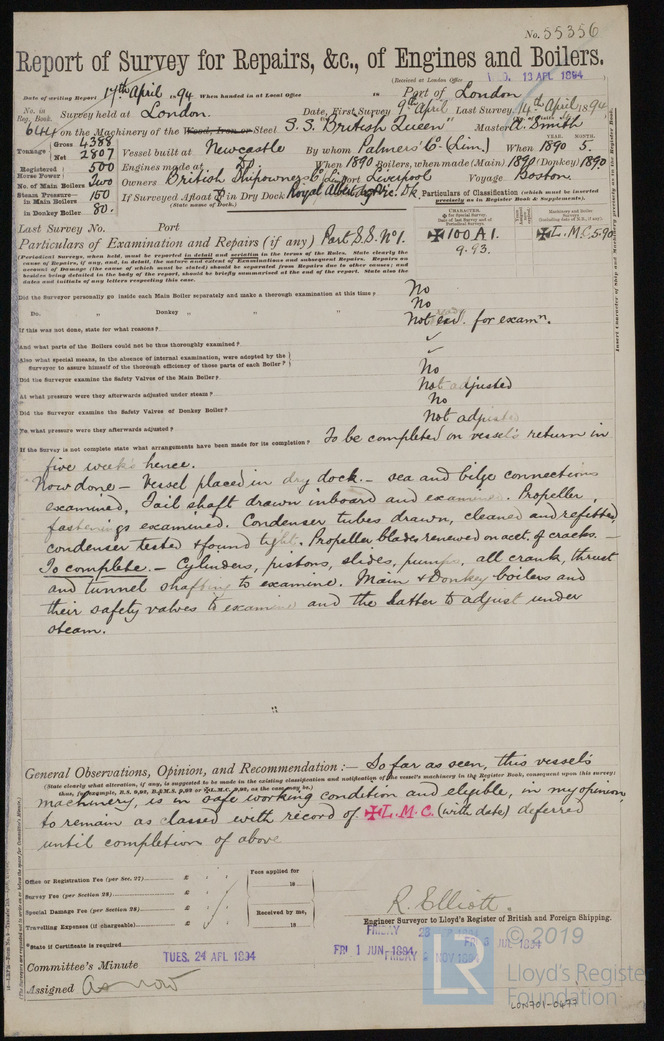 No. 55356
Report of Survey for Repairs, &c., of Engines and Boilers.
(Received at London Office 13 APL 1894
Date of writing Report 17th April 94 When handed in at Local Office 18 Port of London
No. in Reg. Book. Survey held at London. Date, First Survey 9th April Last Survey 14th April 1894
644 on the Machinery of the Wood, Iron or Steel S.S. "British Queen" Master A. Smith
Tonnage Gross 4388 Net 2807 Vessel built at Newcastle By whom Palmers' Co (Lim.) When 1890 YEAR. MONTH. 5.
Registered Horse Power 500 Engines made at Do When 1890 Boilers, when made (Main) 1890 (Donkey) 1890
No. of Main Boilers Two Owners British Shipowners Co (Lim) Port Liverpool Voyage Boston.
Steam Pressure in Main Boilers 150 If Surveyed Afloat or in Dry Dock Royal Albert Dk
in Donkey Boiler 80. (State name of Dock.)
Particulars of Classification (which must be inserted precisely as in Register Book & Supplements).
Last Survey No. Port
✠100 A1. 9.93. ✠L.M.C. 5.90
Particulars of Examination and Repairs (if any) Part S.S. No 1.
(Periodical Surveys, when held, must be reported in detail and seriatim in the terms of the Rules. State clearly the
cause of Repairs, if any, and, in detail, the nature and extent of Examinations and subsequent Repairs. Repairs on
account of Damage (the cause of which must be stated) should be separated from Repairs due to other causes; and
besides being detailed in the body of the report, should be briefly summarised at the end of the report. State also the
dates and initials of any letters respecting this case.
Did the Surveyor personally go inside each Main Boiler separately and make a thorough examination at this time? No
Do. " Donkey " " " No
If this was not done, state for what reasons? Not ready for examn.
And what parts of the Boilers could not be thus thoroughly examined? ✓
Also what special means, in the absence of internal examination, were adopted by the
Surveyor to assure himself of the thorough efficiency of those parts of each Boiler? ✓
Did the Surveyor examine the Safety Valves of the Main Boiler? No
At what pressure were they afterwards adjusted under steam? Not adjusted
Did the Surveyor examine the Safety Valves of Donkey Boiler? No
To what pressure were they afterwards adjusted? Not adjusted
If the Survey is not complete state what arrangements have been made for its completion? To be completed on vessel's return in
five weeks hence.
Now done – Vessel placed in dry dock. – sea and bilge connections
examined, Tail shaft drawn inboard and examined. Propeller,
fastenings examined. Condenser tubes drawn, cleaned and refitted,
condenser tested & found tight. Propeller blades renewed on acct. of cracks. –
To complete. – Cylinders, pistons, slides, pumps, all crank, thrust
and tunnel shafting to examine. Main & Donkey boilers and
their safety valves to examine and the latter to adjust under
steam.
General Observations, Opinion, and Recommendation :— So far as seen, this vessel's
(State clearly what alteration, if any, is suggested to be made in the existing classification and notification of the vessel's machinery in the Register Book, consequent upon this survey:
thus, for example, B.S. 9,92, B.&M.S. 9,92 or ✠L.M.C. 9,92, as the case may be.)
machinery, is in safe working condition and eligible, in my opinion,
to remain as classed with record of ✠L.M.C. (with date) deferred
until completion of above
Office or Registration Fee (per Sec. 27)... £ Fees applied for
Survey Fee (per Section 28)... £ 18
Special Damage Fee (per Section 28)... £ Received by me,
Travelling Expenses (if chargeable)... £ 18
R. Elliott.
Engineer Surveyor to Lloyd's Register of British and Foreign Shipping.
*State if Certificate is required
TUES. 24 APL 1894 FRI 1 JUN 1894
Committee's Minute
Assigned As now
© 2019
LR
Lloyd's Register
Foundation
LON701-0477